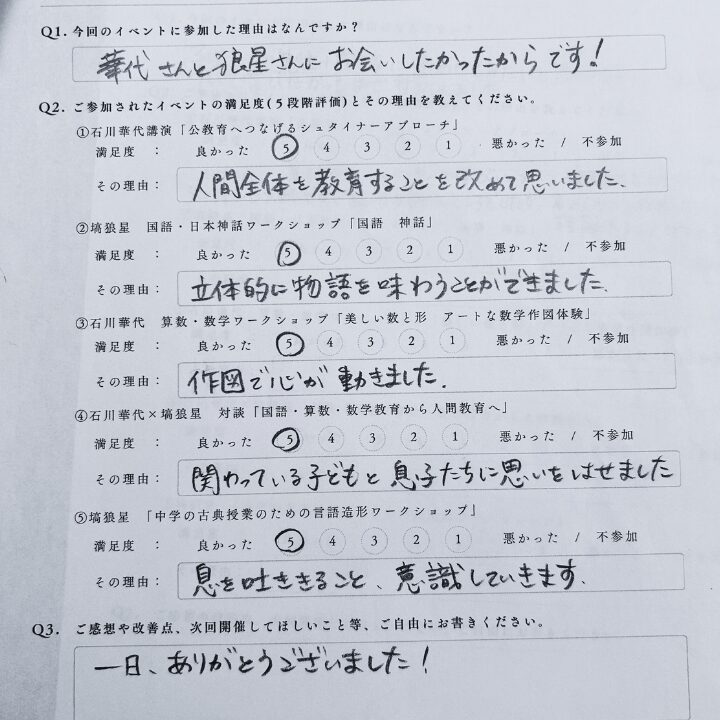 Q1. 今回のイベントに参加した理由はなんですか？
華代さんと狼星さんにお会いしたかったからです！
Q2. ご参加されたイベントの満足度(５段階評価)とその理由を教えてください。
①石川華代講演「公教育へつなげるシュタイナーアプローチ」
満足度 ： 良かった 5 4 3 2 1 悪かった / 不参加
その理由： 人間全体を教育することを改めて思いました.
②塙狼星 国語・日本神話ワークショップ「国語 神話」
満足度 ： 良かった 5 4 3 2 1 悪かった / 不参加
その理由： 立体的に物語を味わうことができました.
③石川華代 算数・数学ワークショップ「美しい数と形 アートな数学作図体験」
満足度 ： 良かった 5 4 3 2 1 悪かった / 不参加
その理由： 作図で心が動きました.
④石川華代×塙狼星 対談「国語・算数・数学教育から人間教育へ」
満足度 ： 良かった 5 4 3 2 1 悪かった / 不参加
その理由： 関わっている子どもと息子たちに思いをはせました
⑤塙狼星 「中学の古典授業のための言語造形ワークショップ」
満足度 ： 良かった 5 4 3 2 1 悪かった / 不参加
その理由： 息を吐ききること、意識していきます.
Q3. ご感想や改善点、次回開催してほしいこと等、ご自由にお書きください。
一日、ありがとうございました！